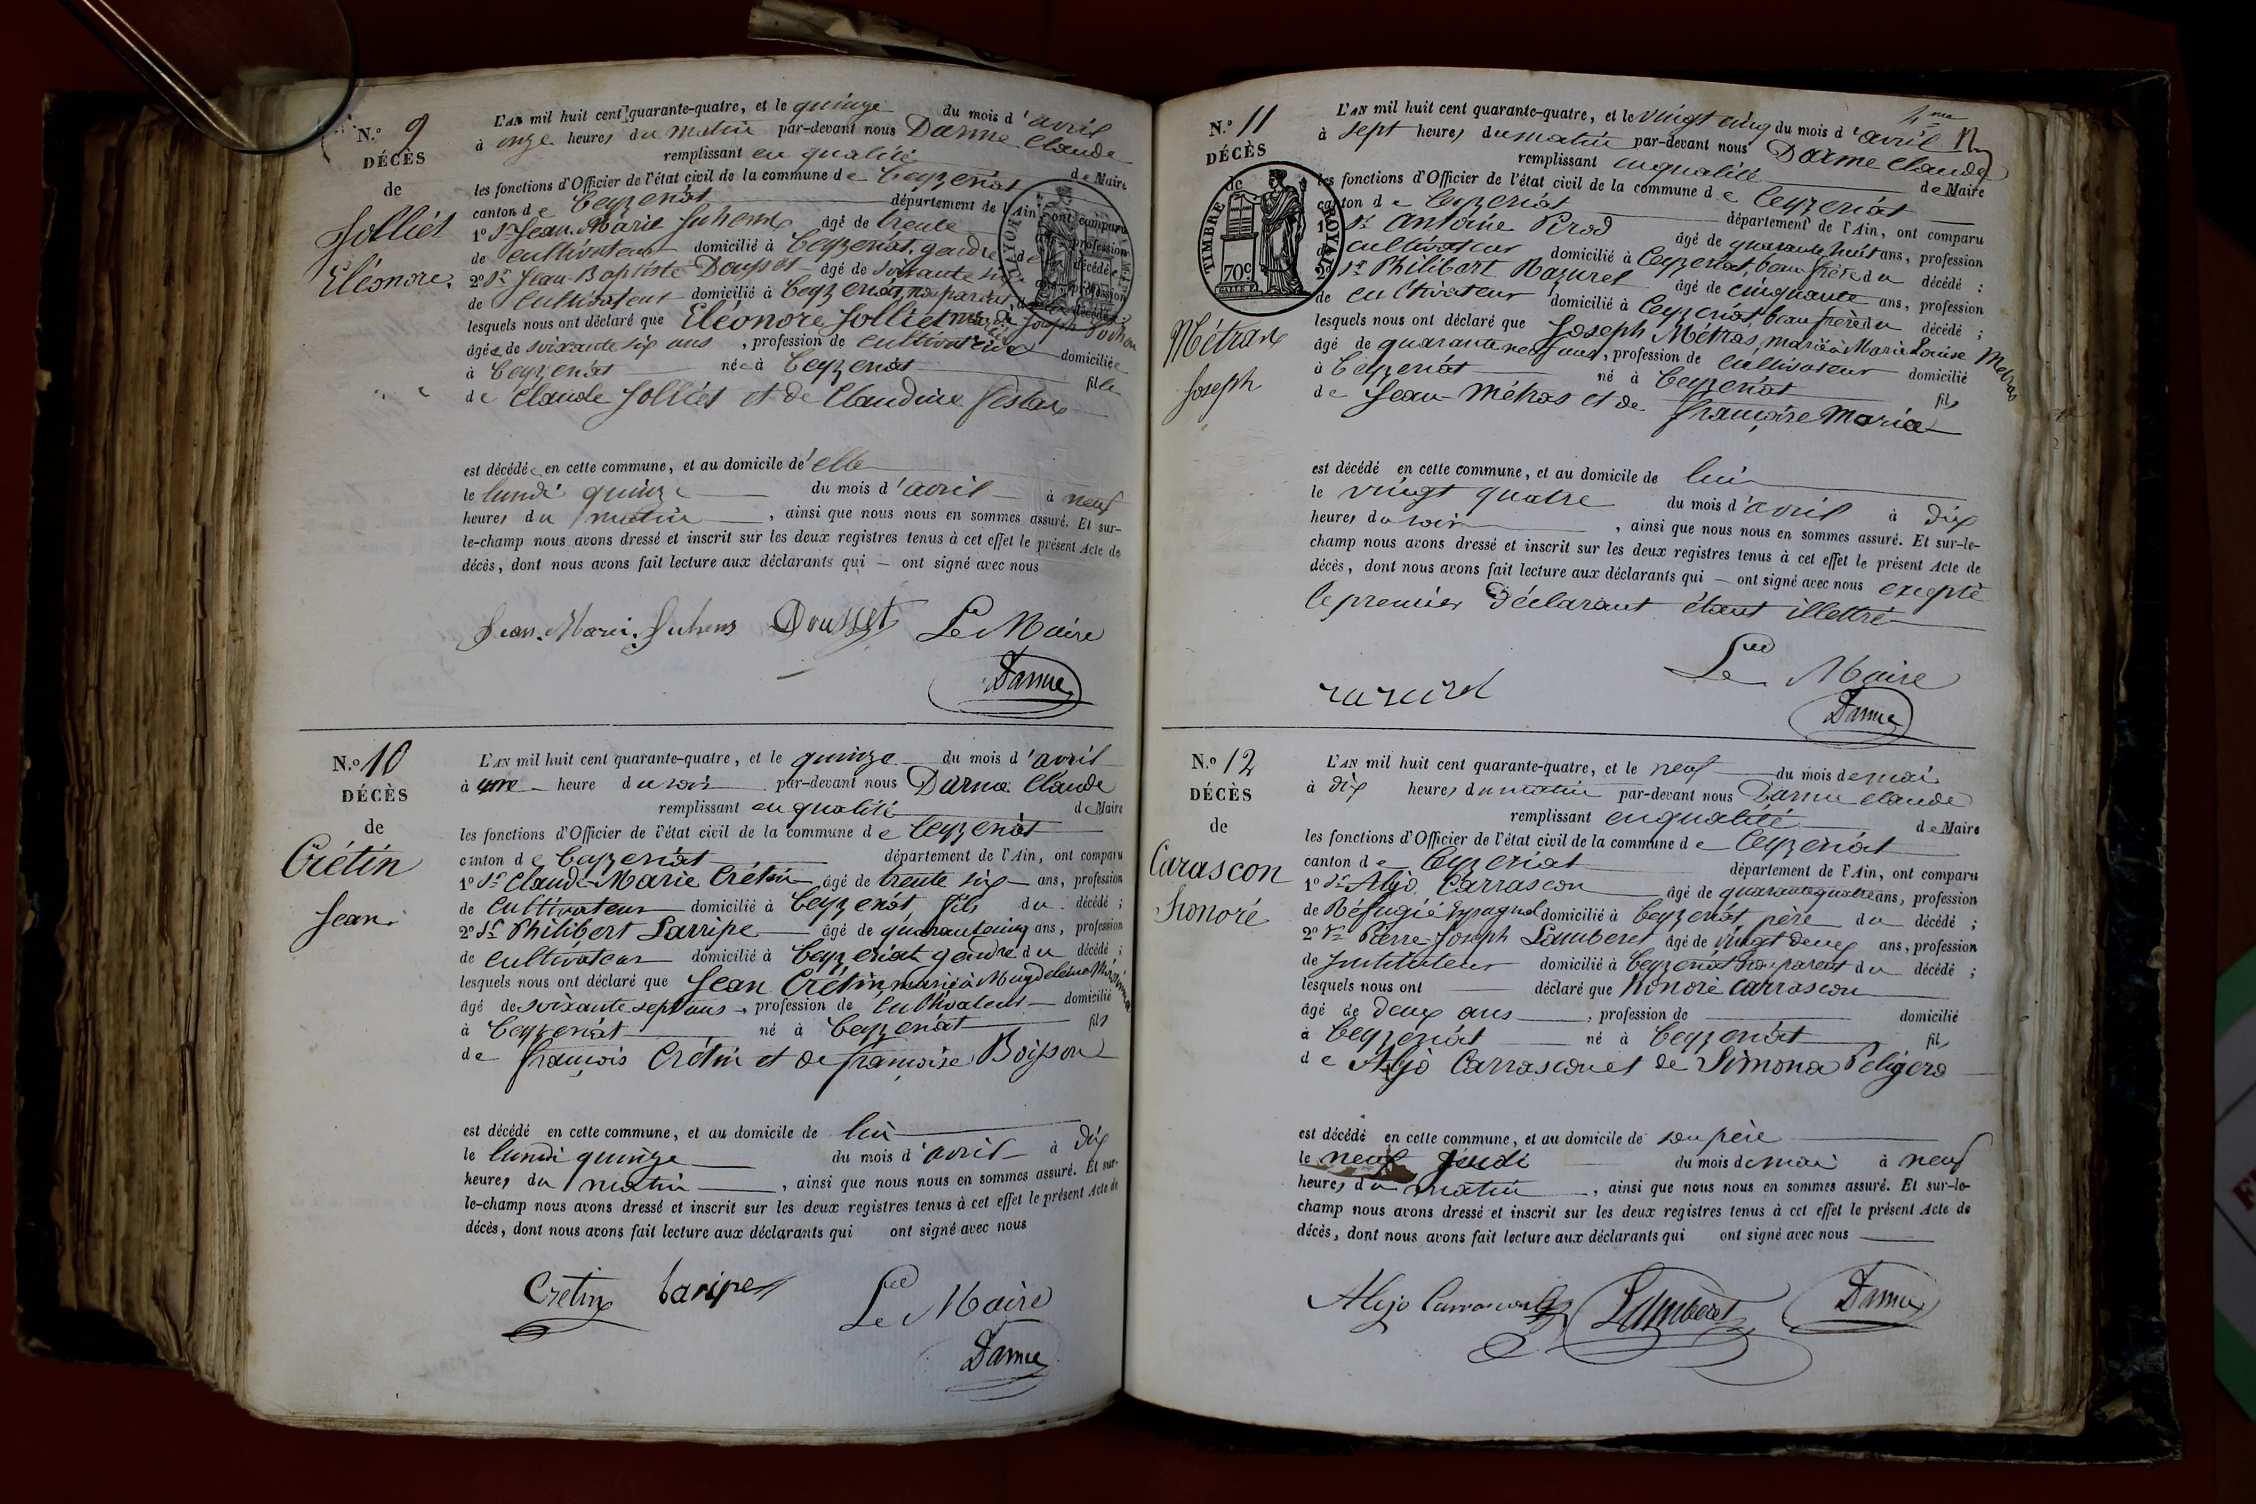 N.º 9
DÉCÈS
de
Jolliet
Eléonore.
L'AN mil huit cent quarante-quatre, et le quinze du mois d'avril
à onze heures du matin par-devant nous Darme Claude
remplissant en qualité de Maire
les fonctions d'Officier de l'état civil de la commune de Ceyzeriat
canton de Ceyzeriat département de l'Ain, ont comparu
1º Sr Jean-Marie Juhem âgé de trente
de cultivateur domicilié à Ceyzeriat, gendre de décédée
2º Sr Jean-Baptiste Dousset âgé de soixante six
de cultivateur domicilié à Ceyzeriat, non parent, de décédée
lesquels nous ont déclaré que Eléonore Jolliet Joseph
âgée de soixante six ans, profession de cultivatrice domiciliée
à Ceyzeriat née à Ceyzeriat fille
de Claude Jolliet et de Claudine
est décédée en cette commune, et au domicile d'elle
le lundi quinze du mois d'avril à neuf
heures du matin, ainsi que nous nous en sommes assuré. Et sur-
le-champ nous avons dressé et inscrit sur les deux registres tenus à cet effet le présent Acte de
décès, dont nous avons fait lecture aux déclarants qui — ont signé avec nous
Jean-Marie Juhem Dousset Le Maire
Darme
N.º 10
DÉCÈS
de
Crétin
Jean.
L'AN mil huit cent quarante-quatre, et le quinze du mois d'avril
à une heure du soir par-devant nous Darme Claude
remplissant en qualité de Maire
les fonctions d'Officier de l'état civil de la commune de Ceyzeriat
canton de Ceyzeriat département de l'Ain, ont comparu
1º Sr Claude-Marie Crétin âgé de trente six ans, profession
de cultivateur domicilié à Ceyzeriat, fils du décédé ;
2º Sr Philibert Larripe âgé de quarante cinq ans, profession
de cultivateur domicilié à Ceyzeriat gendre du décédé ;
lesquels nous ont déclaré que Jean Crétin, marié à Magdeleine
âgé de soixante sept ans, profession de cultivateur domicilié
à Ceyzeriat né à Ceyzeriat fils
de françois Crétin et de françoise Boisson
est décédé en cette commune, et au domicile de lui
le lundi quinze du mois d'avril à dix
heures du matin, ainsi que nous nous en sommes assuré. Et sur-
le-champ nous avons dressé et inscrit sur les deux registres tenus à cet effet le présent Acte de
décès, dont nous avons fait lecture aux déclarants qui ont signé avec nous
Crétin Laripe Le Maire
Darme
4me
N.º 11
DÉCÈS
de
TIMBRE ROYAL
70 c.
Métras
Joseph
L'AN mil huit cent quarante-quatre, et le vingt cinq du mois d'avril
à sept heures du matin par-devant nous Darme Claude
remplissant en qualité de Maire
les fonctions d'Officier de l'état civil de la commune de Ceyzeriat
canton de Ceyzeriat département de l'Ain, ont comparu
1º Sr Antoine Perod âgé de quarante huit ans, profession
de cultivateur domicilié à Ceyzeriat, beau frère du décédé ;
2º Sr Philibert Razurel âgé de cinquante ans, profession
de cultivateur domicilié à Ceyzeriat, beau frère du décédé ;
lesquels nous ont déclaré que Joseph Métras, marié à Marie Louise Metras
âgé de quarante neuf ans, profession de cultivateur domicilié
à Ceyzeriat né à Ceyzeriat fils
de Jean Métras et de françoise Marie
est décédé en cette commune, et au domicile de lui
le vingt quatre du mois d'avril à dix
heures du soir, ainsi que nous nous en sommes assuré. Et sur-le-
champ nous avons dressé et inscrit sur les deux registres tenus à cet effet le présent Acte de
décès, dont nous avons fait lecture aux déclarants qui — ont signé avec nous excepté
le premier déclarant étant illettré
Le Maire
razurel
Darme
N.º 12
DÉCÈS
de
Carascon
honoré
L'AN mil huit cent quarante-quatre, et le neuf du mois de mai
à dix heures du matin par-devant nous Darme Claude
remplissant en qualité de Maire
les fonctions d'Officier de l'état civil de la commune de Ceyzeriat
canton de Ceyzeriat département de l'Ain, ont comparu
1º Sr Alejo Carrascon âgé de quarante quatre ans, profession
de Réfugié Espagnol domicilié à Ceyzeriat, père du décédé ;
2º Sr Pierre Joseph Lamberet âgé de vingt deux ans, profession
de Instituteur domicilié à Ceyzeriat non parent du décédé ;
lesquels nous ont déclaré que honoré Carrascon
âgé de deux ans, profession de domicilié
à Ceyzeriat né à Ceyzeriat fils
de Alejo Carrascon et de Simona Peligero
est décédé en cette commune, et au domicile de son père
le neuf jeudi du mois de mai à neuf
heures du matin, ainsi que nous nous en sommes assuré. Et sur-le-
champ nous avons dressé et inscrit sur les deux registres tenus à cet effet le présent Acte de
décès, dont nous avons fait lecture aux déclarants qui ont signé avec nous
Alejo Carrascon Lamberet Darme